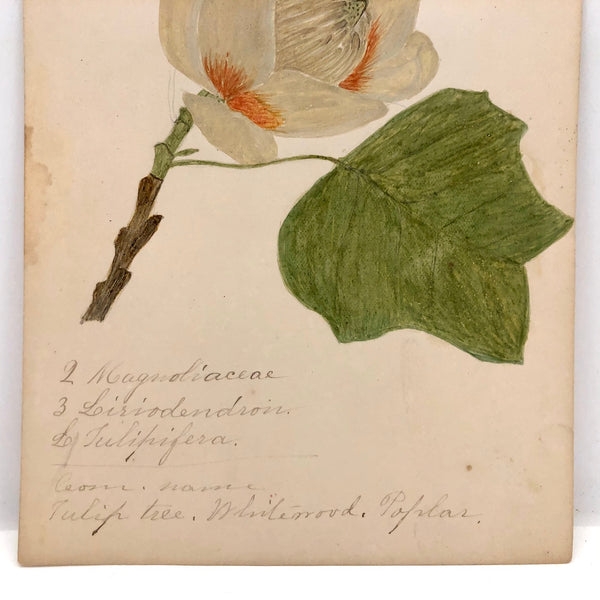 2 Magnoliaceae
3 Liriodendron.
L Tulipifera.
Com. name
Tulip tree. Whitewood. Poplar.